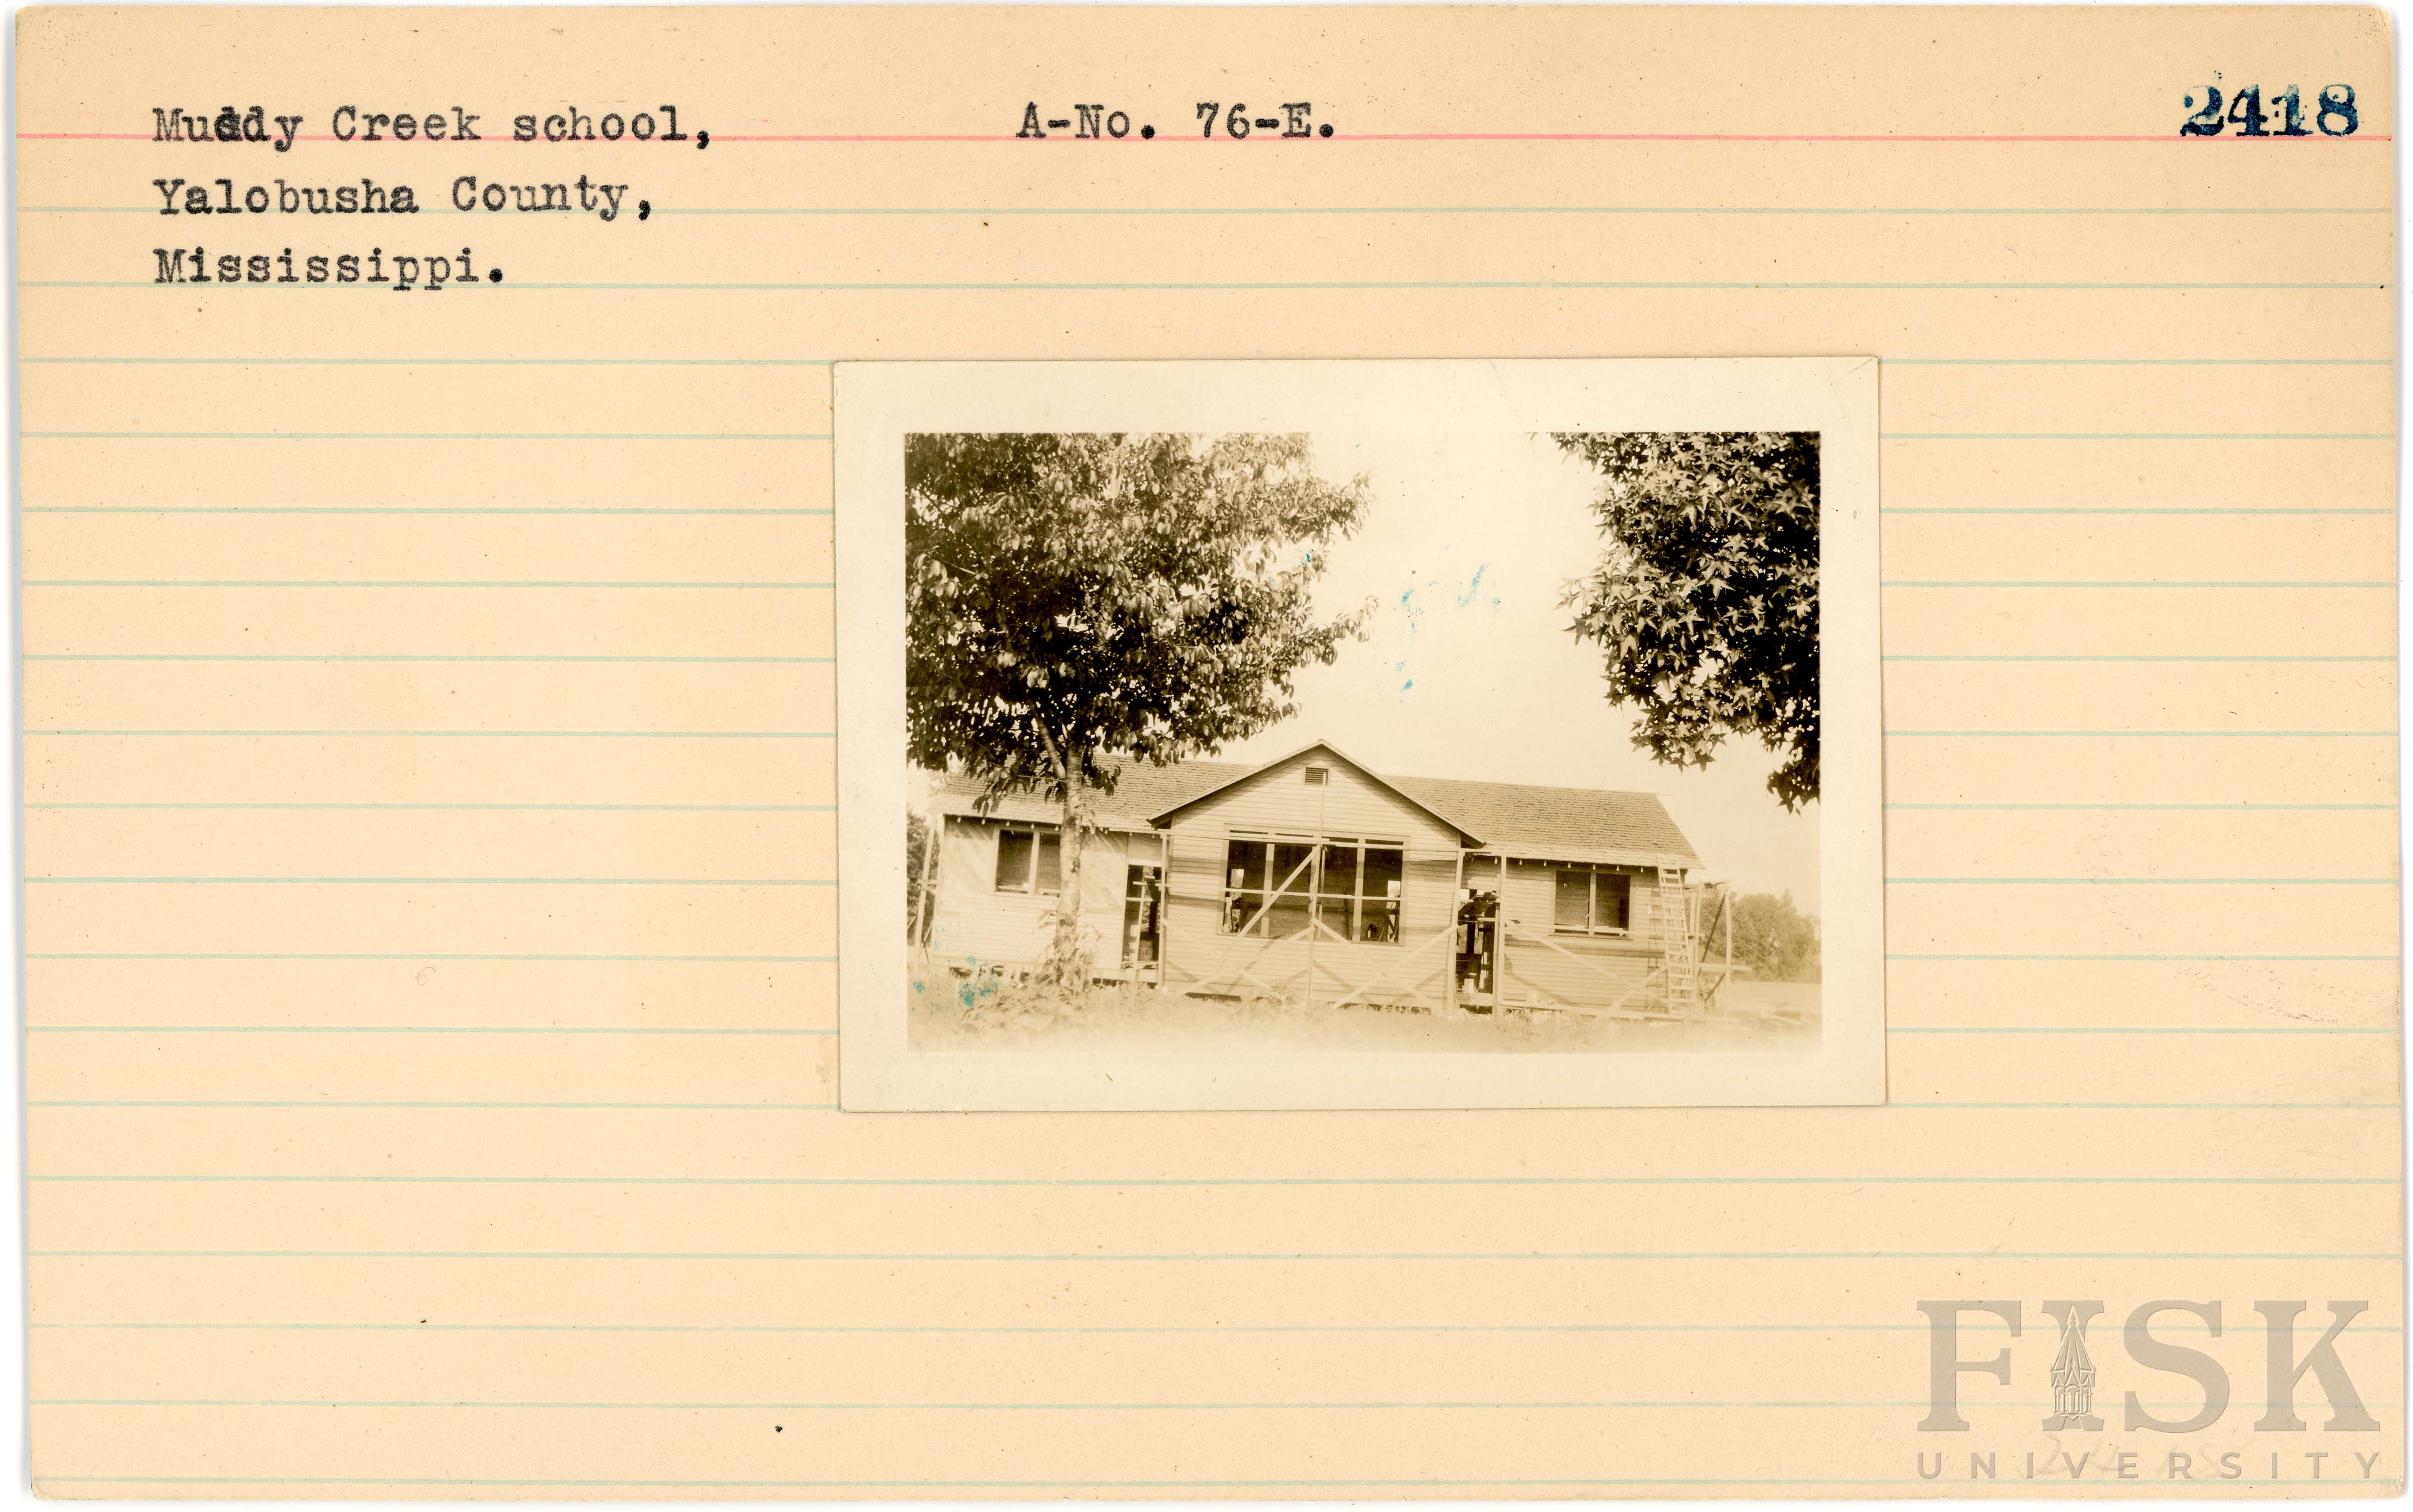 Muddy Creek school, A-No. 76-E. 2418
Yalobusha County,
Mississippi.
FISK
UNIVERSITY